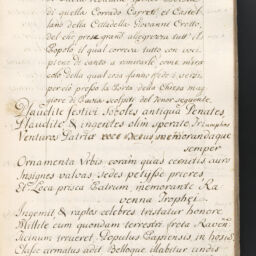 di quella Corrado Capret, et Castel
lano della Cittadella Giovanne Crotto,
del che prese grand alegrezza tutt' il
Popolo, il qual correva tutto, con voci
piene di canto a mirarle come mira
colo della qual cosa fanno fede i versi,
per ciò presso la Porta della Chiesa mag
giore di Pavia scolpiti del tenor seguente.
Plaudite festivi soboles antiqua Penates,
Plaudite & ingentes olim sperate Triumphos
Venturos Patriæ voce Deus memorandaque
semper
Ornamenta Urbis coram quas cernitis auro
Insignes valvas sedes petijsse priores,
Et Loca prisca Patrum memorante Ra
venna Prophei.
Ingemit & raptos celebres tristatur honore
Millite cum quondam terrestri freta Raven
Ticinum irrueret Populus Papiensis, in hostes
Classe armatus adit Bellogue illabitur undis